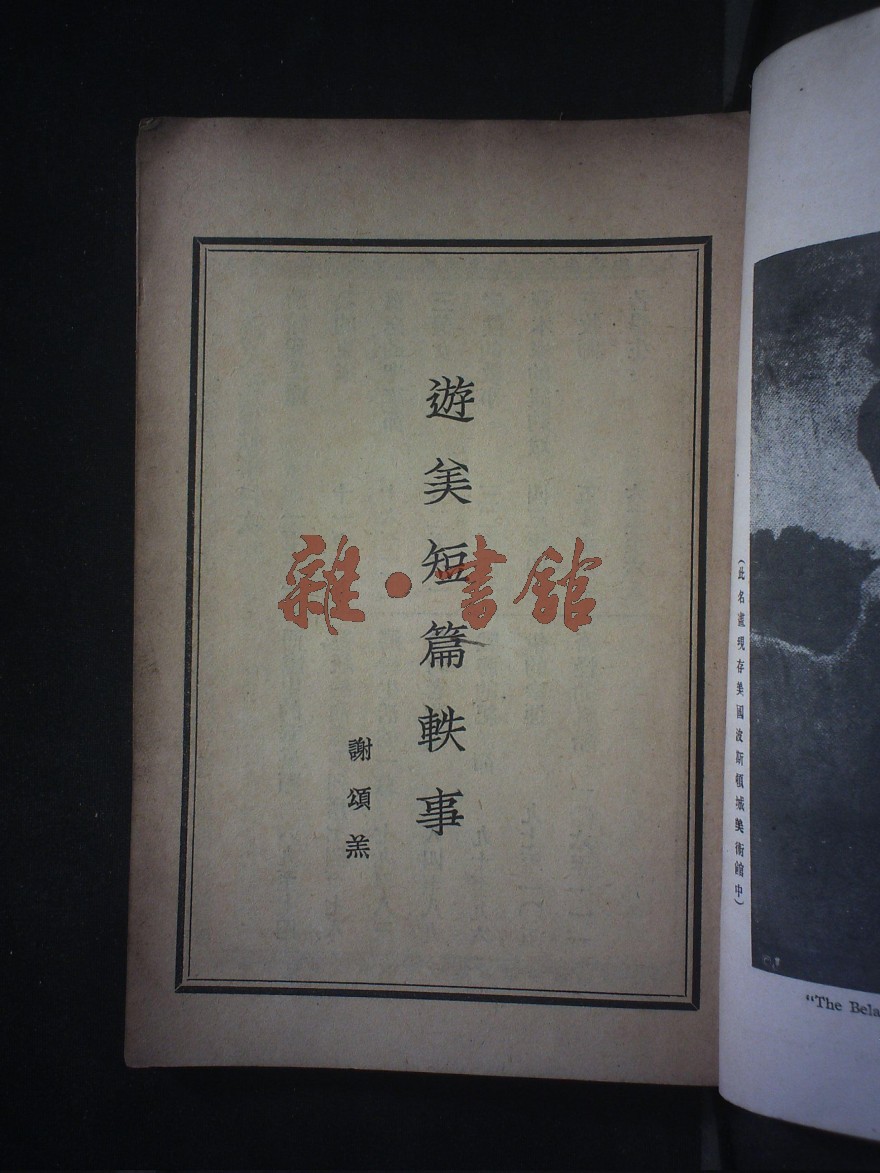 遊美短篇軼事
謝頌羔
雜•書館
(此名畫現存美國波斯頓城美術館中)
“The Bela